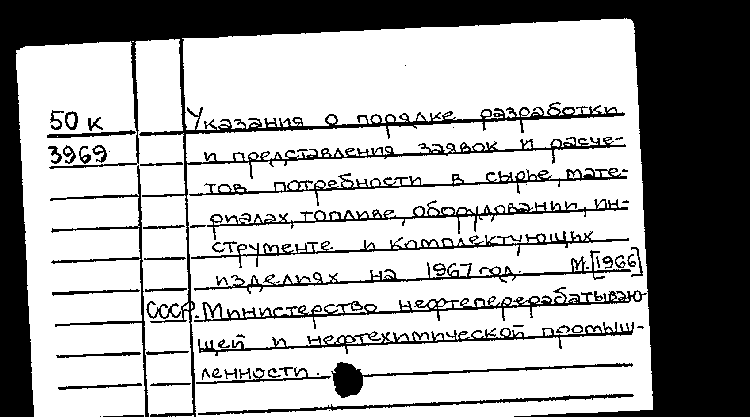 50 к Указания о порядке разработки
3969 и представления заявок и расче-
тов потребности в сырье, мате-
риалах, топливе, оборудовании, ин-
струменте и комплектующих
изделиях на 1967 год. М. [1966]
СССР. Министерство нефтеперерабатываю-
щей и нефтехимической промыш-
ленности.